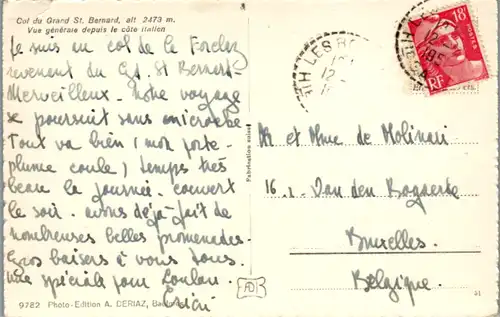 Col du Grand St. Bernard, alt 2473 m.
Vue générale depuis le côté italien
Je suis au col de la Forclaz
revenant du Gd. St Bernard
Merveilleux. Notre voyage
se poursuit sans anicroche
Tout va bien (mon porte-
plume coule) temps très
beau la journée. couvert
le soir. avons déjà fait de
nombreuses belles promenades.
Gros baisers à vous tous.
une spéciale pour Loulou.
9782 Photo-Edition A. DERIAZ,
Fabrication suisse
18F
RF
LES
12
M et Mme de Molinari
16, r. Van den Bogaerde
Bruxelles.
Belgique.
31